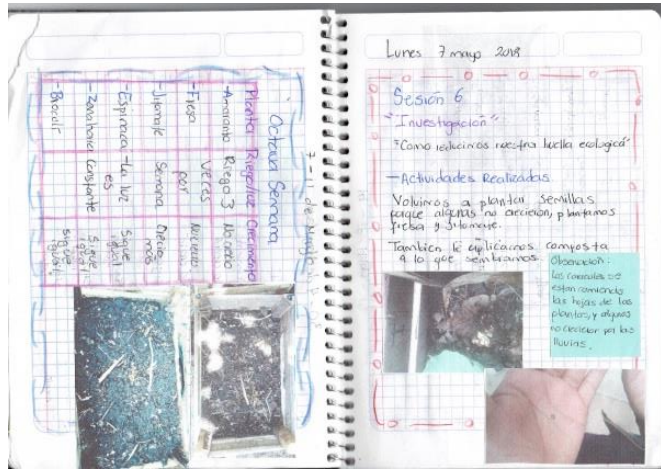 7-11 de Mayo
Octava Semana
Planta Riego/luz Crecimiento
-Amaranto Riego 3 No crecio
-Fresa veces No crecio
-Jitomate por semana Crecio más
-Espinaca -La luz es Sigue igual
-Zanahoria constante Sigue igual
-Brocoli Sigue igual
Lunes 7 mayo 2018
Sesión 6
"Investigación"
"Como reducimos nuestra huella ecologica"
-Actividades Realizadas
Volvimos a plantar semillas
porque algunas no crecieron, plantamos
fresa y jitomate.
Tambien le aplicamos composta
a lo que sembramos.
Observación:
los caracoles se
estan comiendo
las hojas de las
plantas, y algunas
no crecieron por las
lluvias.